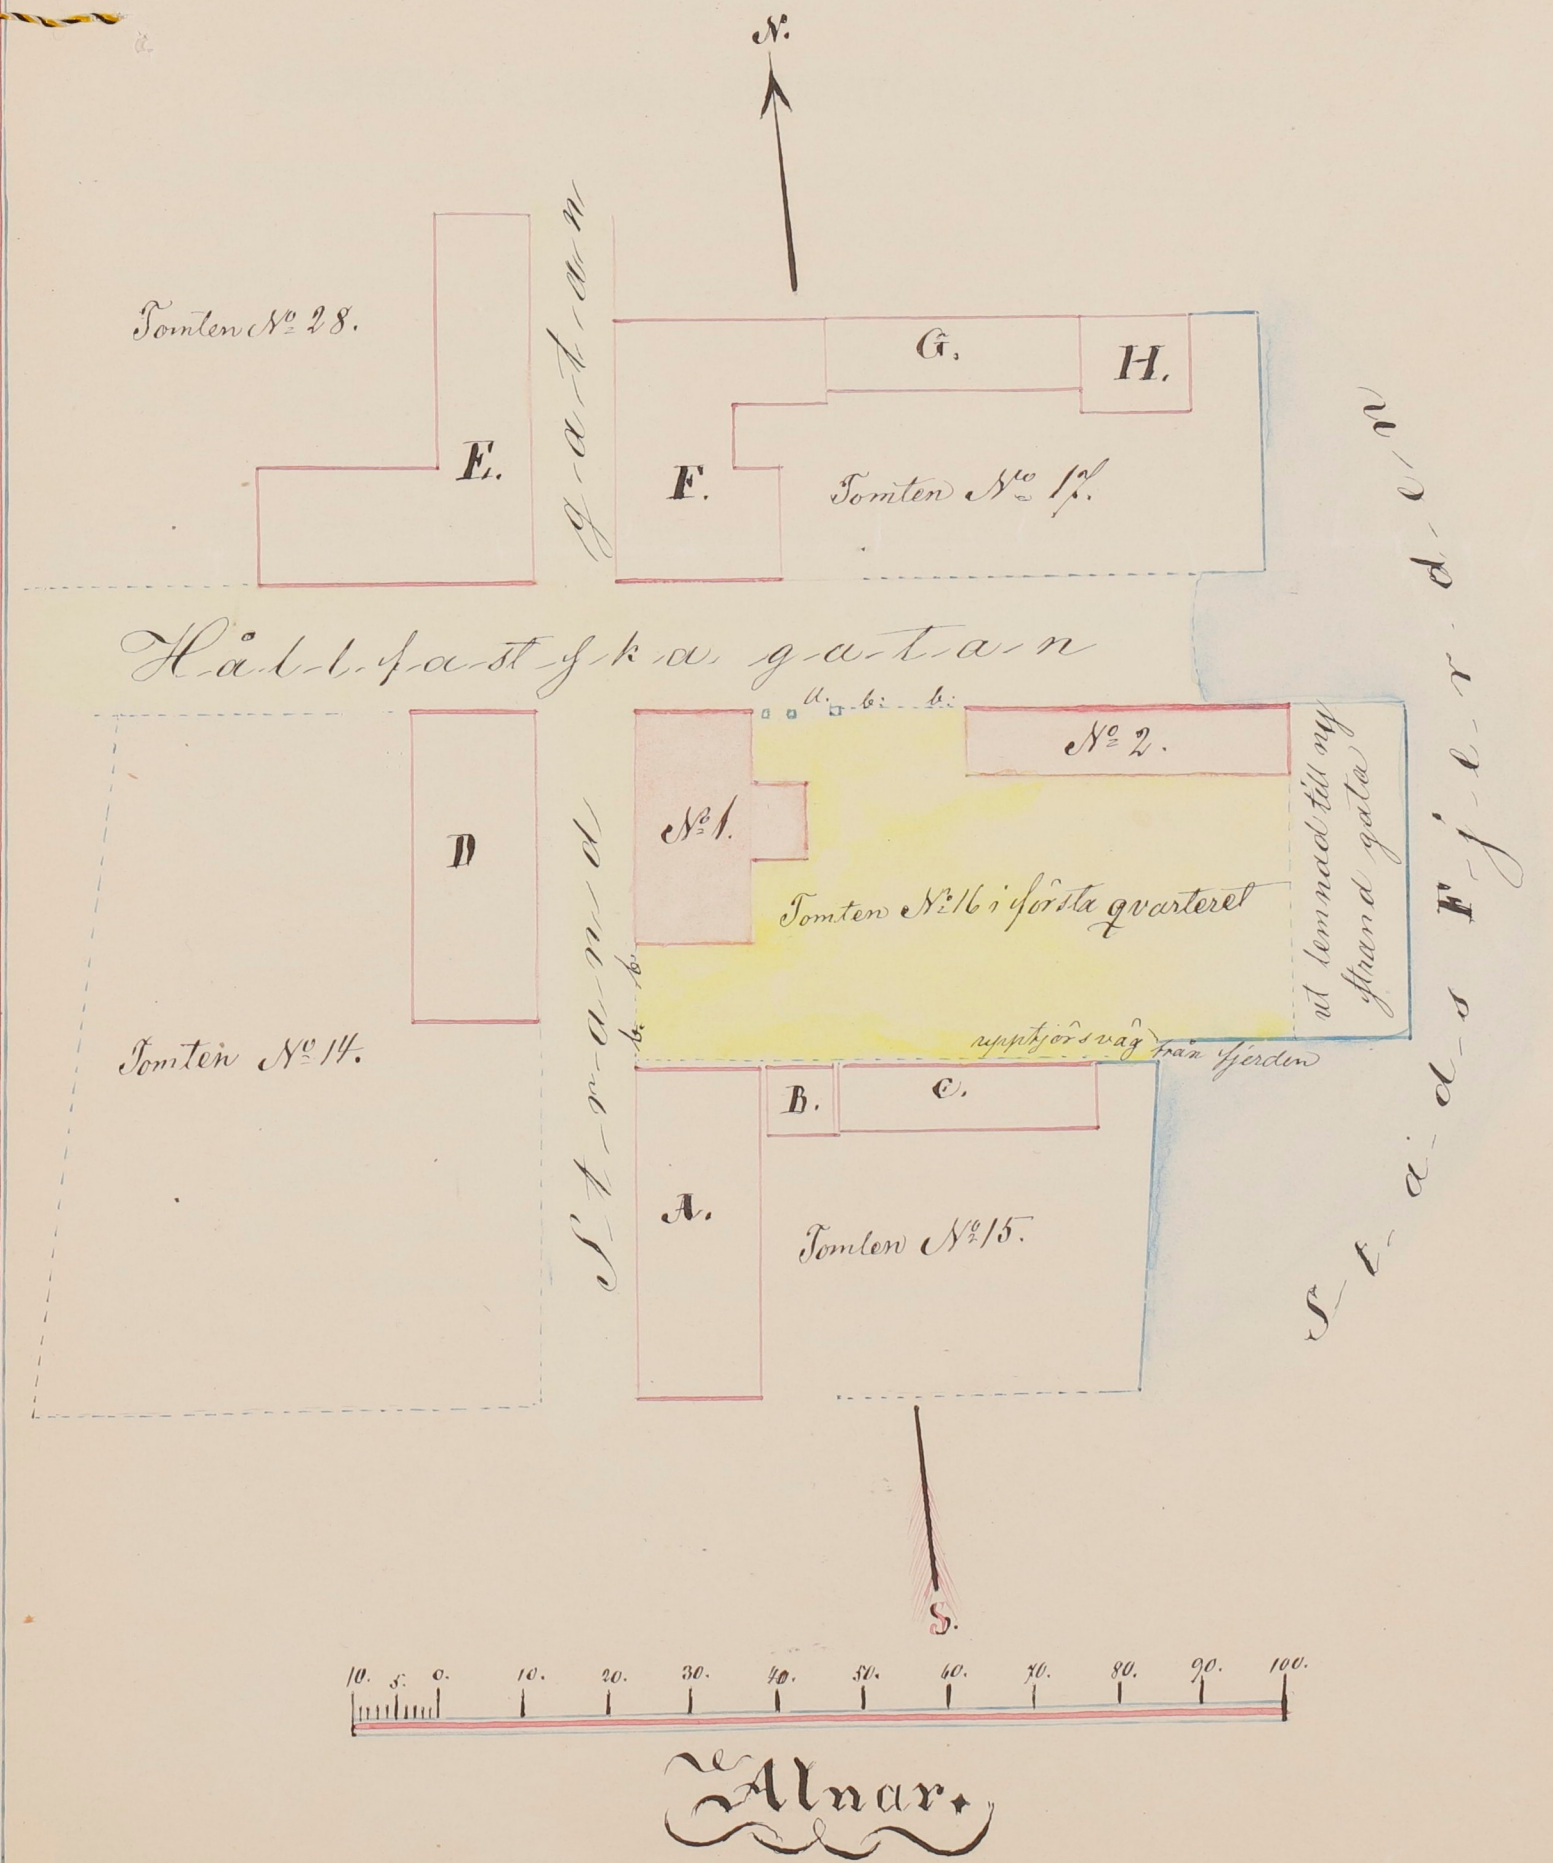 N.
Tomten No 28.
E.
Strand gatan
F.
G.
H.
Tomten No 17.
Hållfastska gatan
a. b: b:
No 2.
No 1.
D
Tomten No 16 i första qvarteret
ut lemnad till ny
strand gata
Stads Fjerden
b. b.
Tomten No 14.
från fjerden
A.
B.
C.
Tomten No 15.
S.
10. 5. 0. 10. 20. 30. 40. 50. 60. 70. 80. 90. 100.
Alnar.